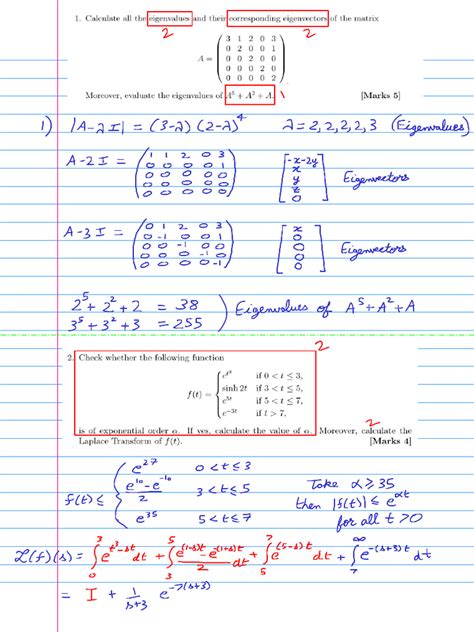 1. Calculate all the eigenvalues and their corresponding eigenvectors of the matrix
2 2
A = ( 3 1 2 0 3
0 2 0 0 1
0 0 2 0 0
0 0 0 2 0
0 0 0 0 2 ) .
Moreover, evaluate the eigenvalues of A⁵ + A² + A. 1 [Marks 5]
1) |A-λI| = (3-λ) (2-λ)⁴ λ = 2, 2, 2, 2, 3 (Eigenvalues)
A-2I = ( 1 1 2 0 3
0 0 0 0 1
0 0 0 0 0
0 0 0 0 0
0 0 0 0 0 ) [ -x-2y
x
y
z
0 ] Eigenvectors
A-3I = ( 0 1 2 0 3
0 -1 0 0 1
0 0 -1 0 0
0 0 0 -1 0
0 0 0 0 -1 ) [ x
0
0
0
0 ] Eigenvectors
2⁵ + 2² + 2 = 38
3⁵ + 3² + 3 = 255 ) Eigenvalues of A⁵+A²+A
2
2. Check whether the following function
f(t) = { e^{t³} if 0 < t ≤ 3,
sinh 2t if 3 < t ≤ 5,
e^{5t} if 5 < t ≤ 7,
e^{-3t} if t > 7,
2
is of exponential order α. If yes, calculate the value of α. Moreover, calculate the
Laplace Transform of f(t). [Marks 4]
f(t) ≤ { e²⁷ 0<t≤3
e¹⁰-e⁻¹⁰/2 3<t≤5
e³⁵ 5<t≤7
Take α ≥ 35
then |f(t)| ≤ e^{αt}
for all t>0
L(f)(s) = ∫₀³ e^{t³-st} dt + ∫₃⁵ (e^{(1-s)t} - e^{-(1+s)t})/2 dt + ∫₅⁷ e^{(5-s)t} dt + ∫₇^∞ e^{-(s+3)t} dt
= I + 1/(s+3) e^{-7(s+3)}